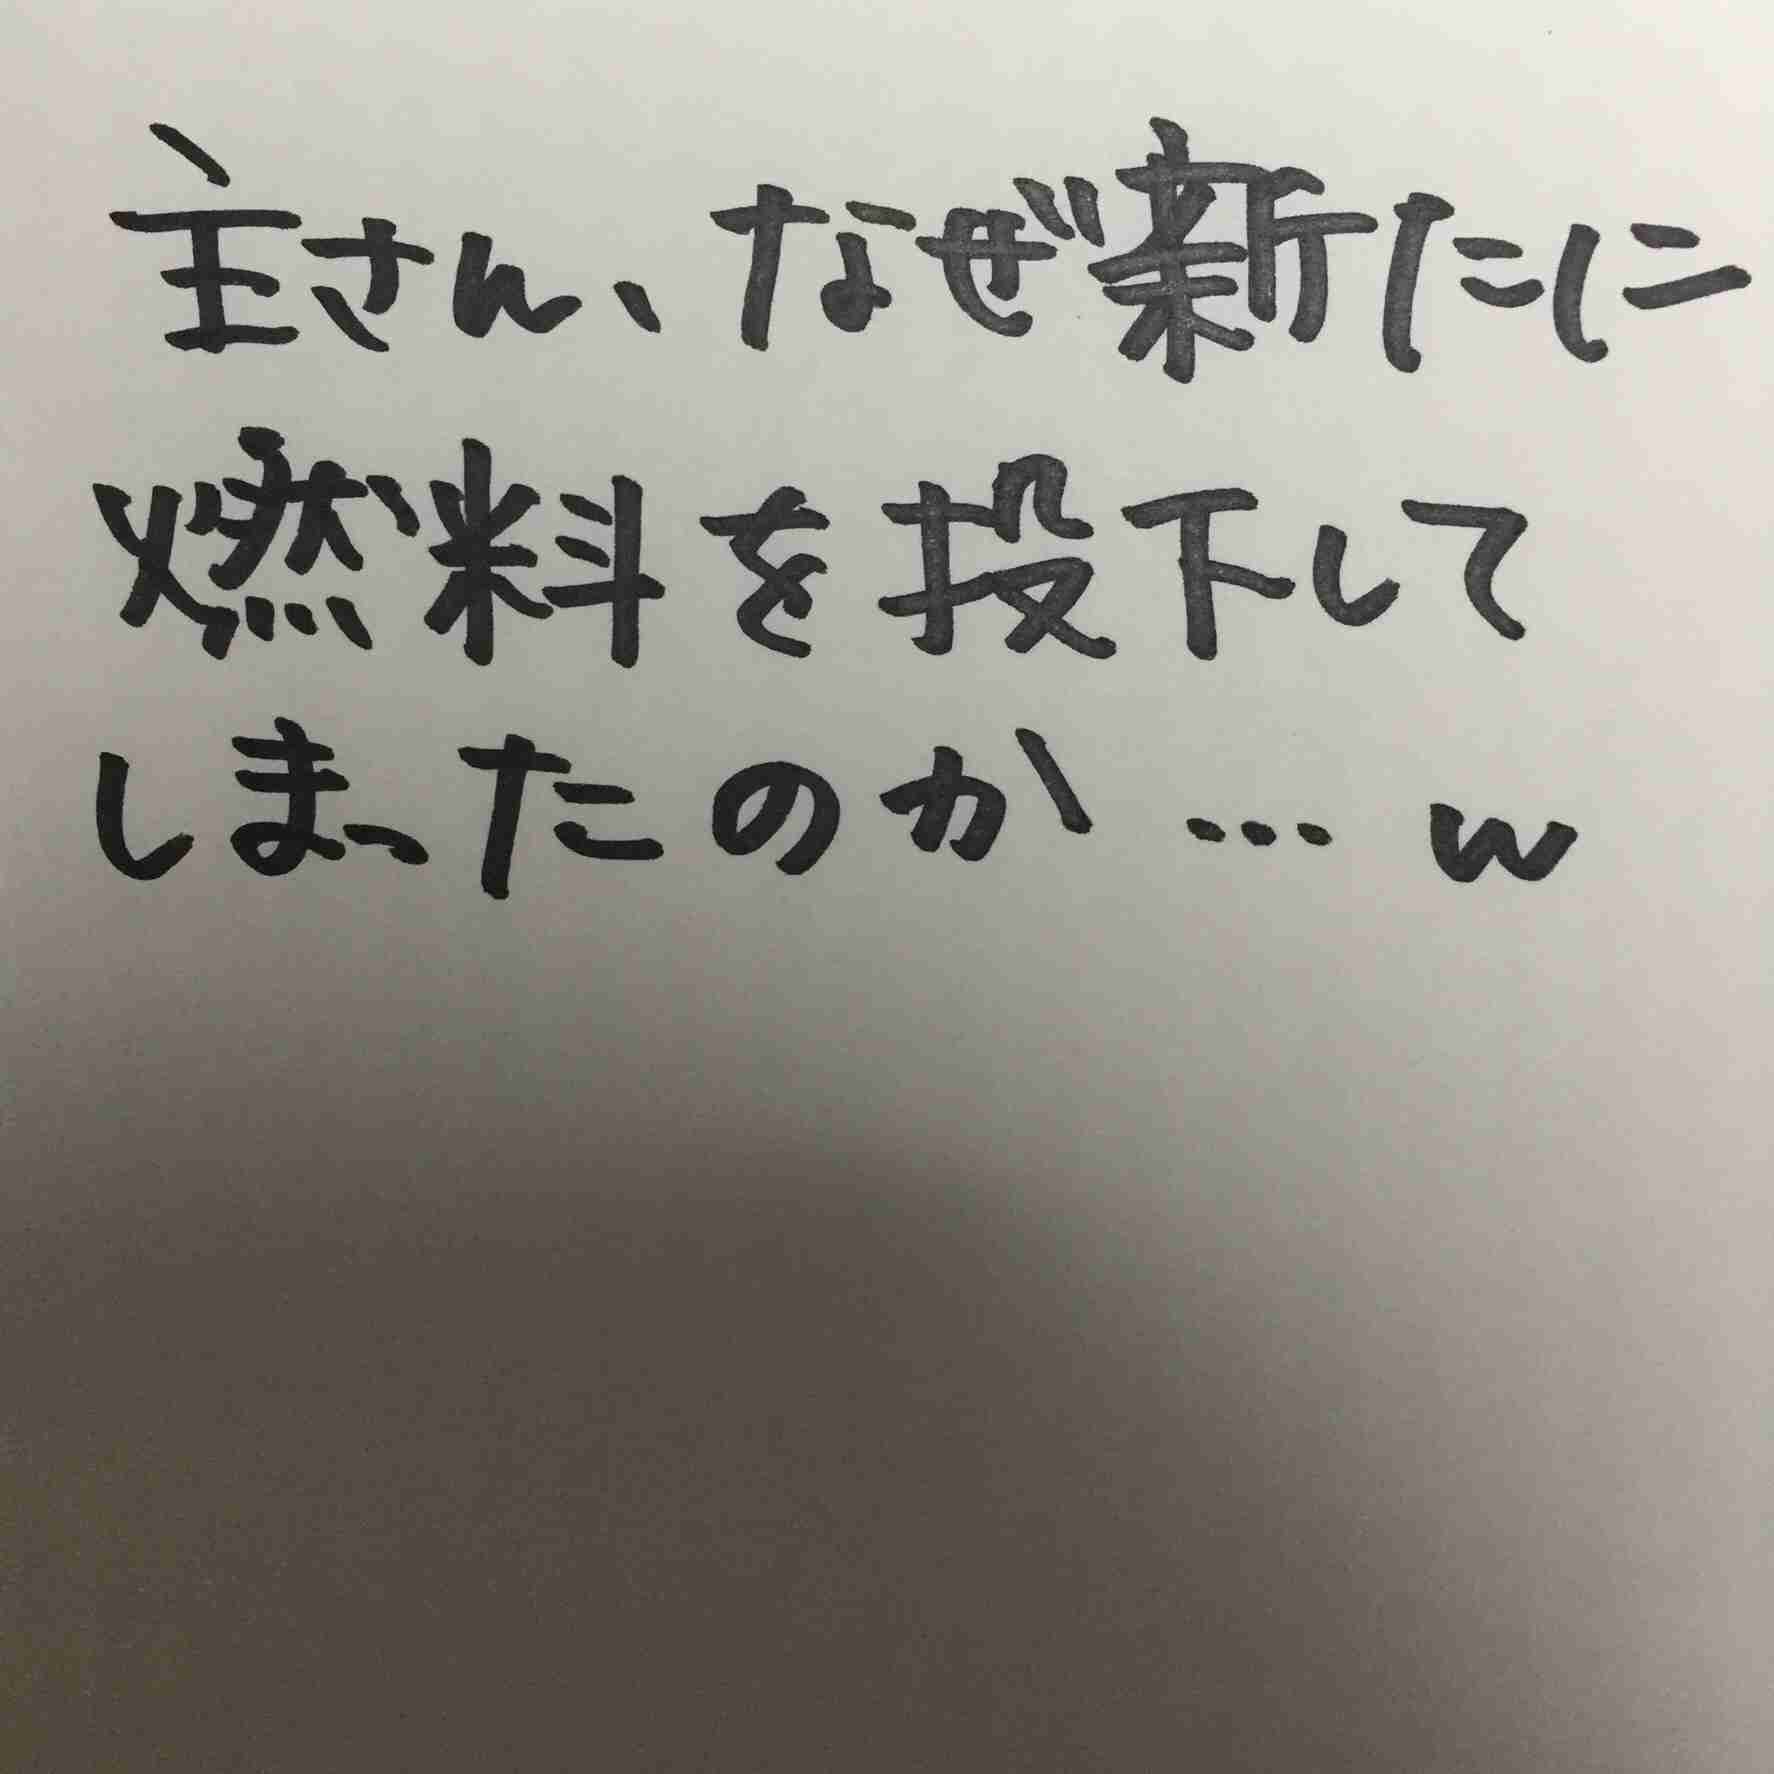 主さん、なぜ新たに
燃料を投下して
しまったのか…w